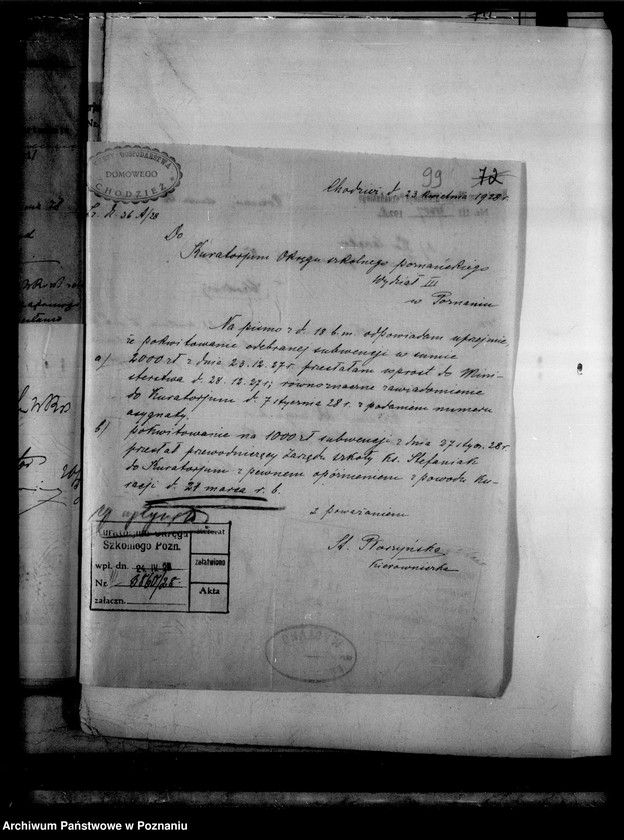 99 72
GOSPODARSTWA
DOMOWEGO
CHODZIEŻ
Chodzież d. 23 kwietnia 1928 r.
L. dz. 36 A/28
Do
Kuratorjum Okręgu szkolnego poznańskiego
Wydział III
w Poznaniu
Na pismo z d. 18 b.m. odpowiadam uprzejmie,
że pokwitowanie odebranej subwencji w sumie
a) 2000 zł z dnia 23.12.27 r przesłałam wprost do Mini-
sterstwa d. 28.12.27 r; równoznaczne zawiadomienie
do Kuratorjum d. 7 stycznia 28 r. z podaniem numeru
asygnaty.
b) pokwitowanie na 1000 zł subwencji z dnia 27 stycz. 28 r
przesłał przewodniczący zarządu szkoły ks. Stefaniak
do Kuratorjum z pewnem opóźnieniem z powodu ku-
racji d. 28 marca r. b.
z poważaniem
kierowniczka
Szkolnego Pozn.
wpł. dn. 24 IV 28
załatwiono
Nr. III 8860/28
Akta
załączn.
Archiwum Państwowe w Poznaniu